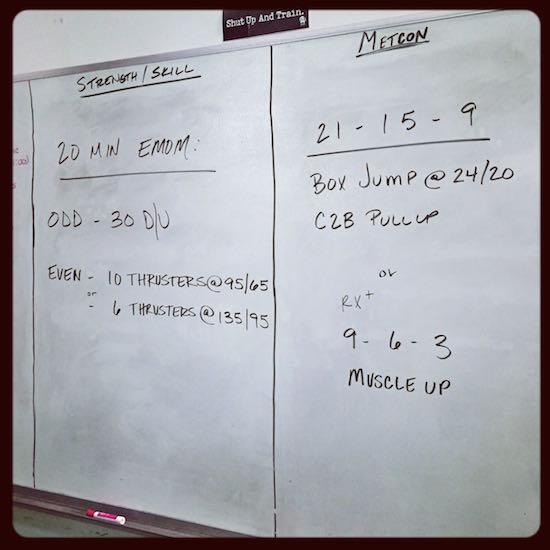 Shut Up And Train.
STRENGTH / SKILL
20 MIN EMOM:
ODD - 30 D/U
EVEN - 10 THRUSTERS @ 95/65
or
- 6 THRUSTERS @ 135/95
METCON
21 - 15 - 9
BOX JUMP @ 24/20
C2B PULLUP
or
RX+
9 - 6 - 3
MUSCLE UP